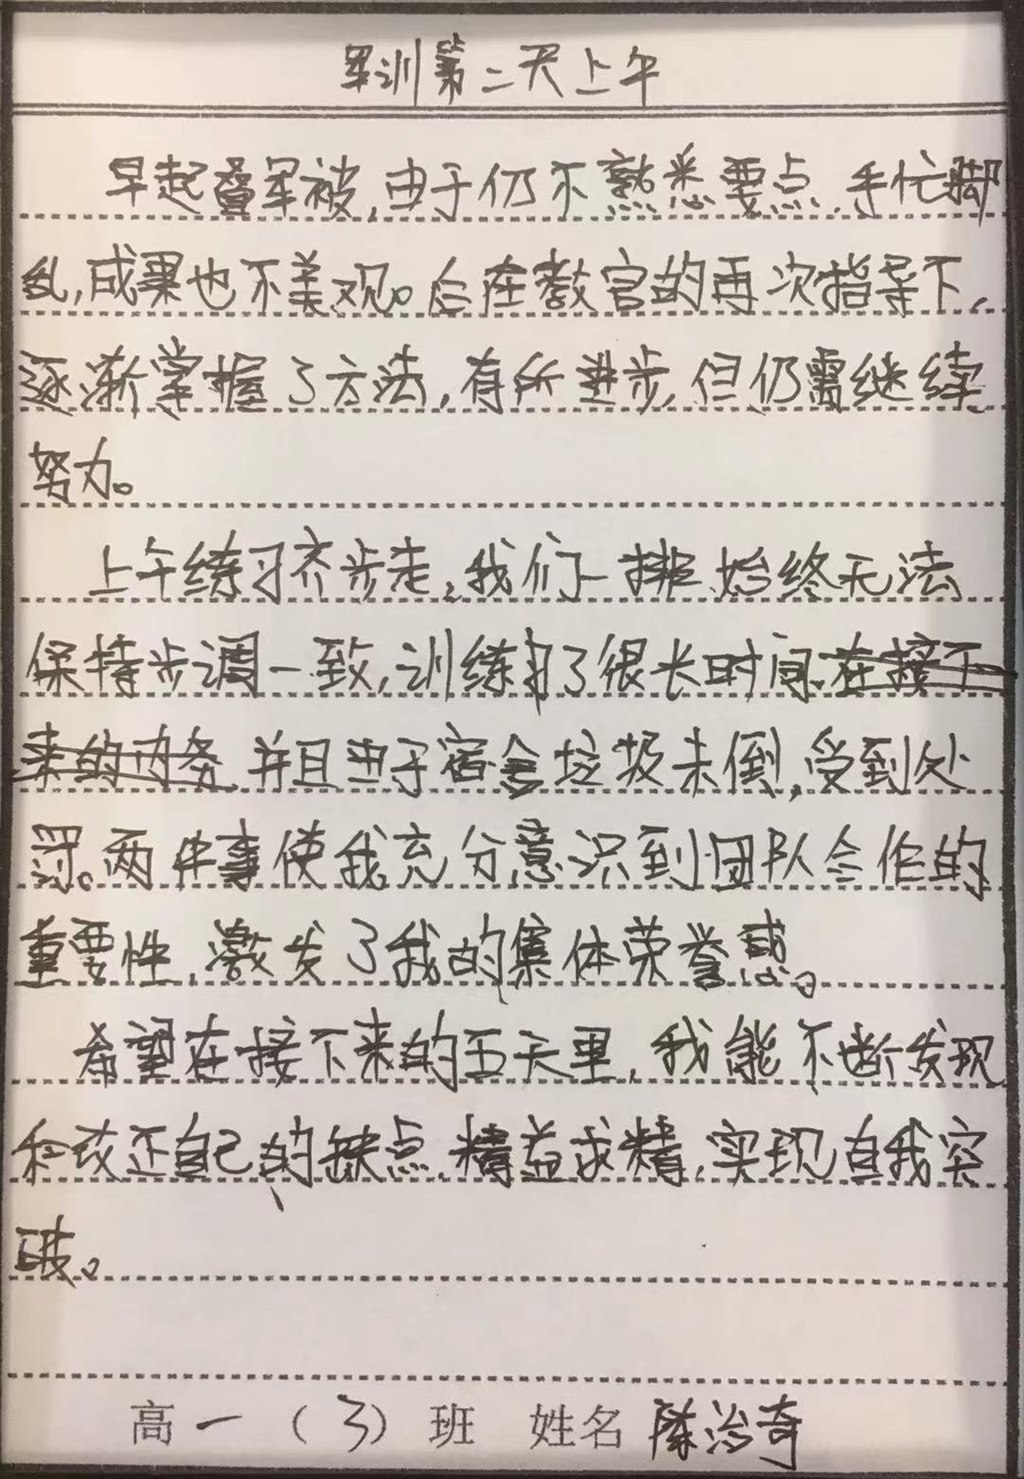 军训第二天上午
早起叠军被,由于仍不熟悉要点,手忙脚
乱,成果也不美观。后在教官的再次指导下,
逐渐掌握了方法,有所进步,但仍需继续
努力。
上午练习齐步走,我们一排始终无法
保持步调一致,训练了很长时间,在接下
来的内务,并且由于宿舍垃圾未倒,受到处
罚。两件事使我充分意识到团队合作的
重要性,激发了我的集体荣誉感。
希望在接下来的五天里,我能不断发现
和改正自己的缺点,精益求精,实现自我突
破。
高一(3)班 姓名 陈治奇